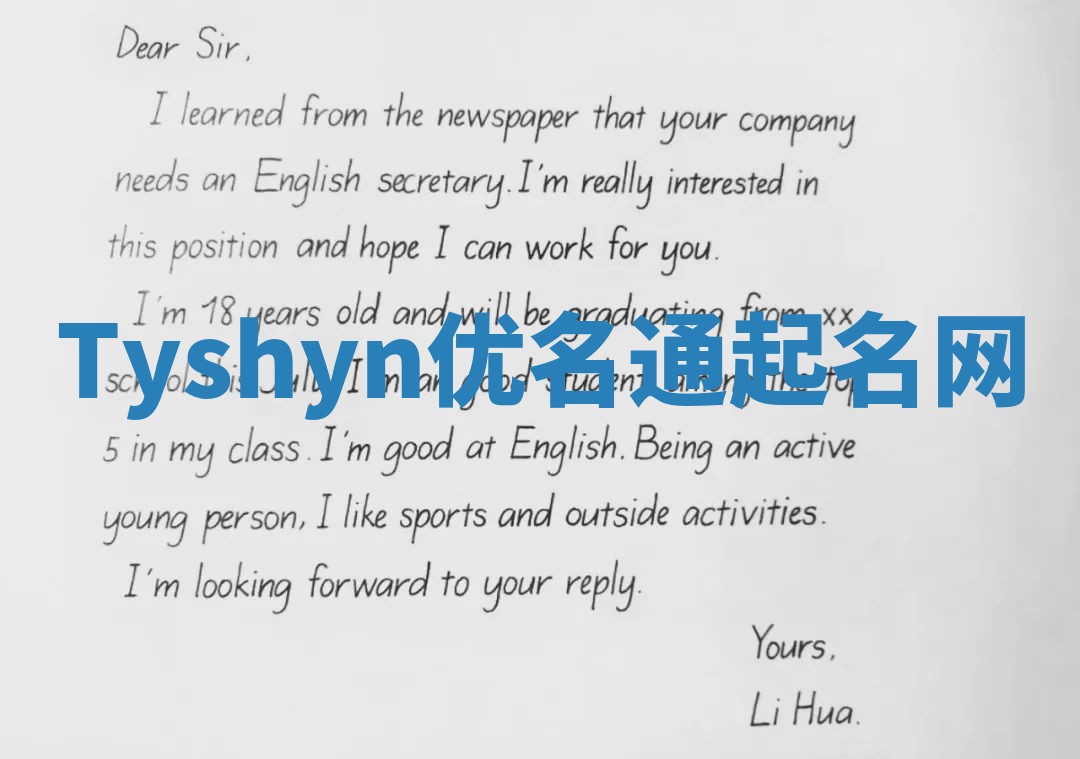 Dear Sir,
I learned from the newspaper that your company
needs an English secretary. I'm really interested in
this position and hope I can work for you.
I'm 18 years old and will be graduating from xx
Tyshyn优名通起名网
school this July. I'm an good student among the top
5 in my class. I'm good at English. Being an active
young person, I like sports and outside activities.
I'm looking forward to your reply.
Yours,
Li Hua.